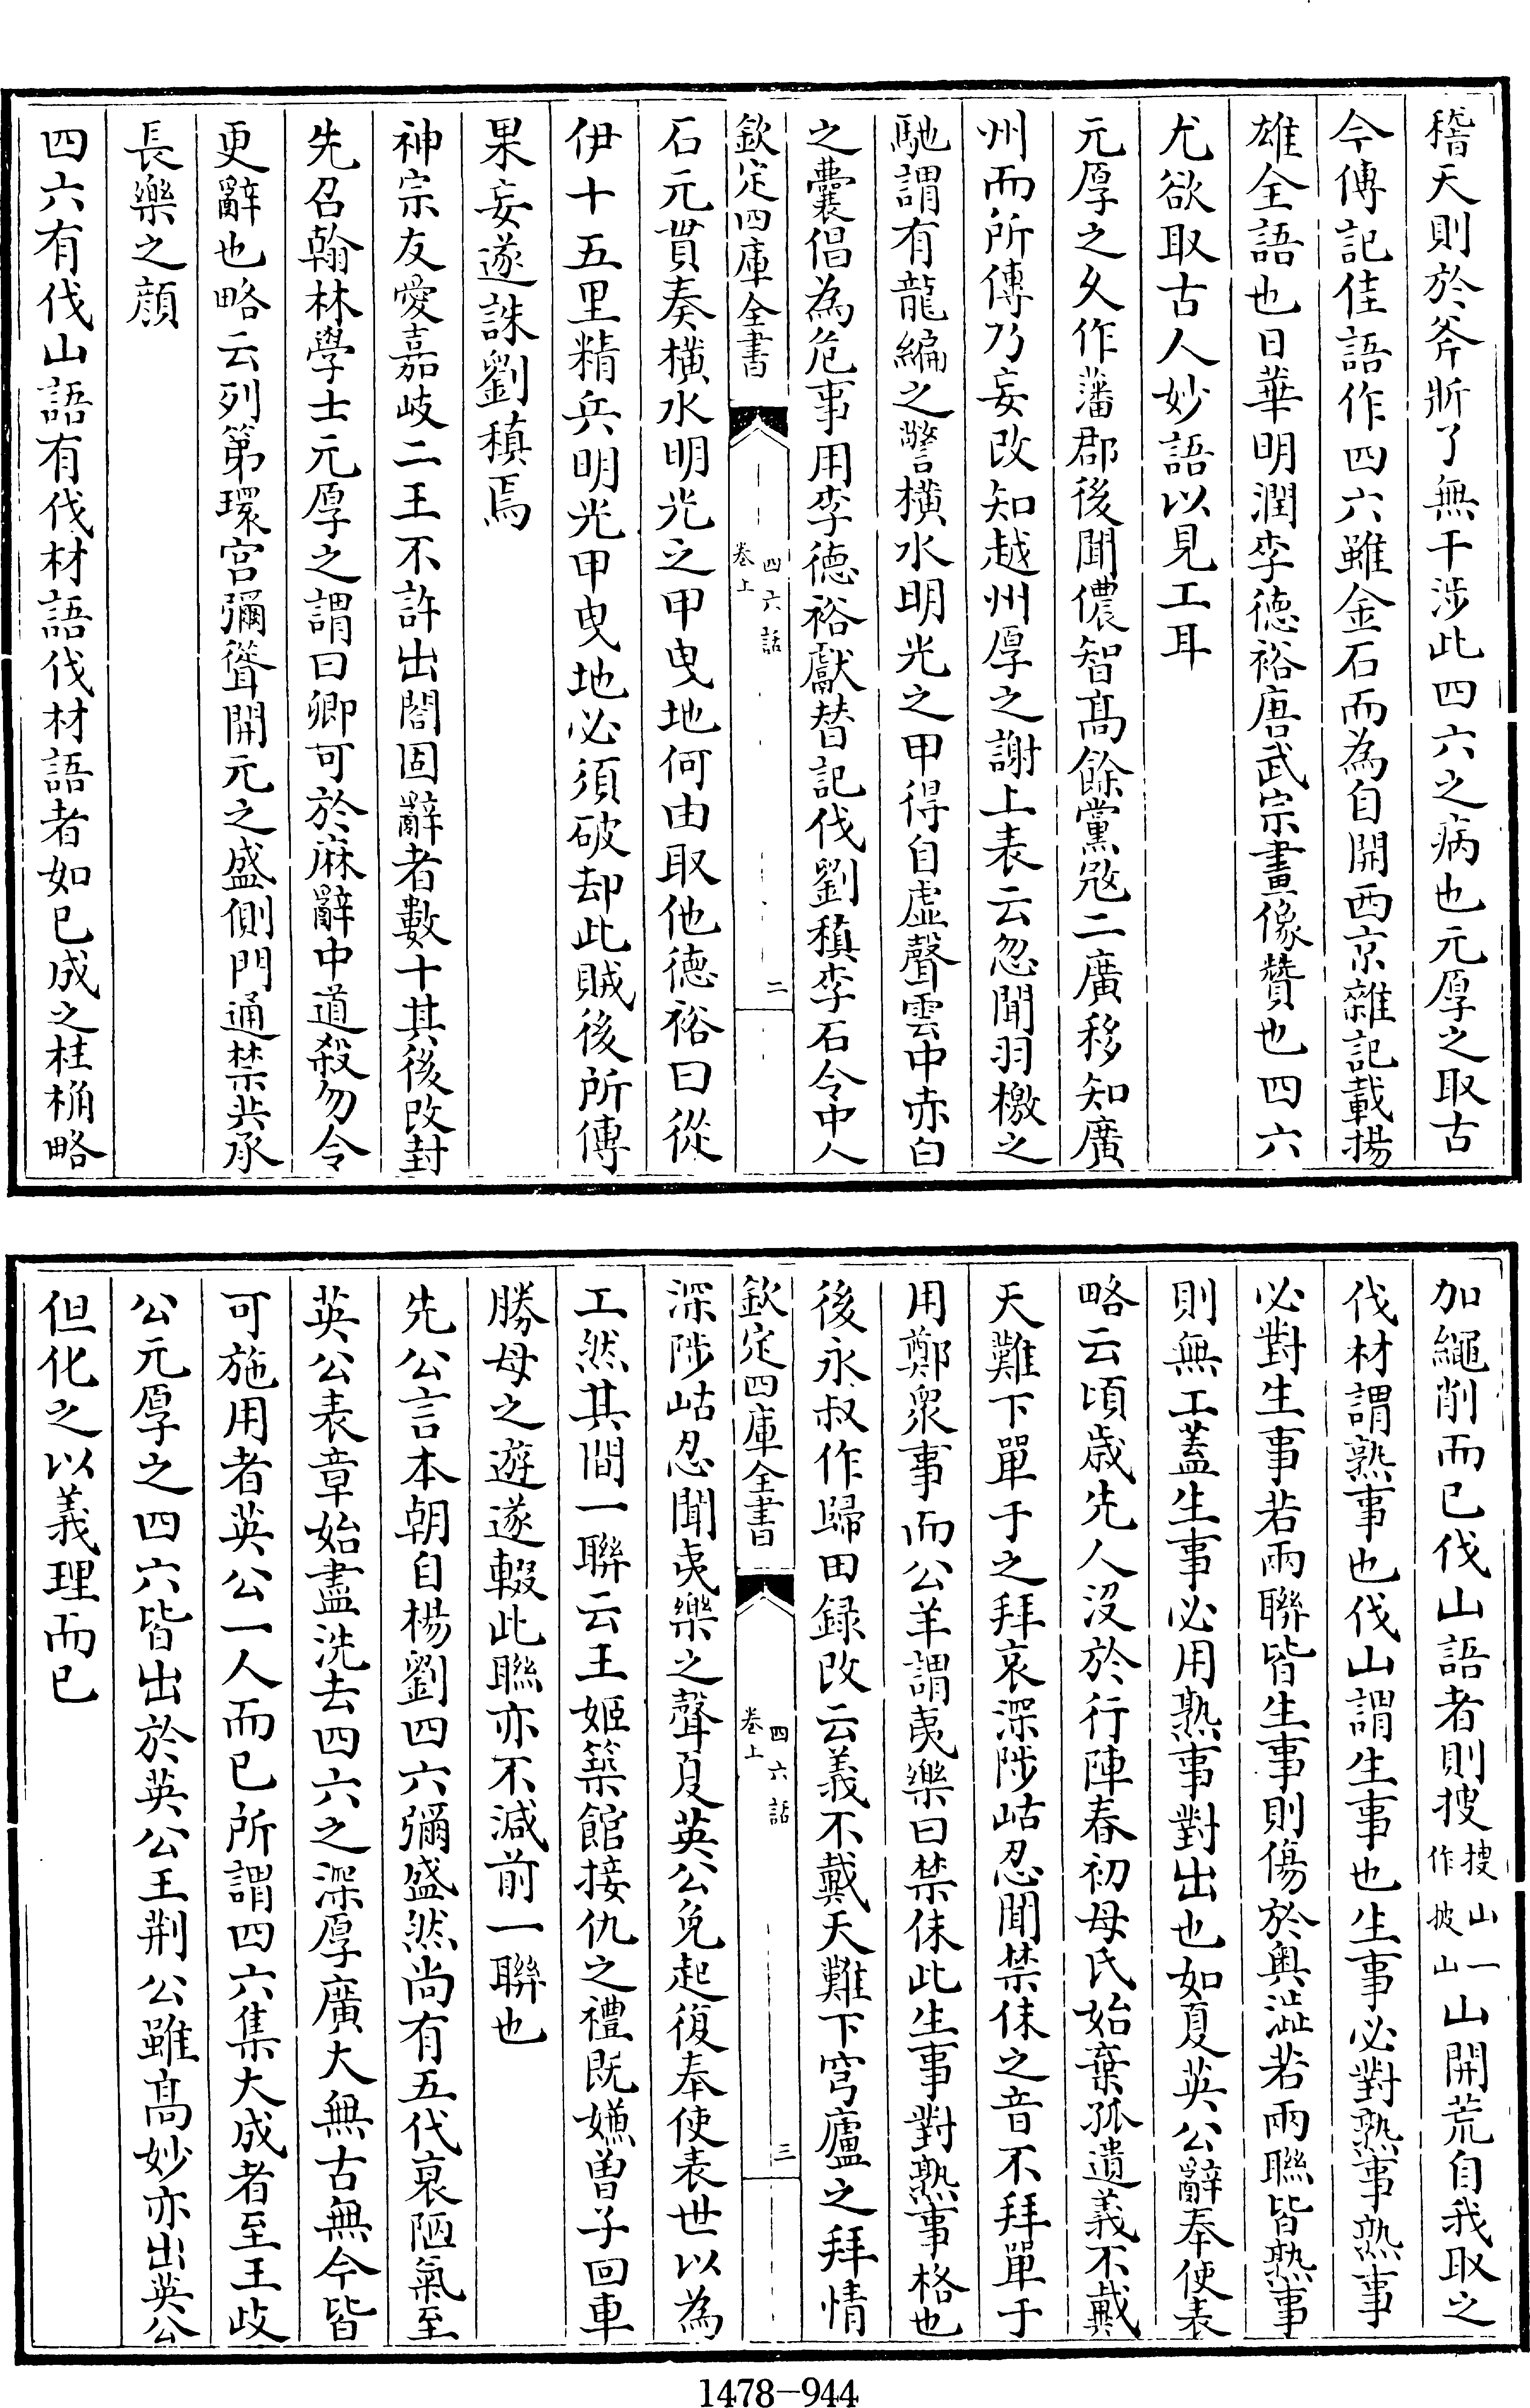 稽天則於斧斨了無干涉此四六之病也元厚之取古
今傳記佳語作四六雖金石而為自開西京雜記載揚
雄全語也日華明潤李德裕唐武宗畫像贊也四六
尤欲取古人妙語以見工耳
元厚之久作藩郡後聞儂智髙餘黨冦二廣移知廣
州而所傳乃妄改知越州厚之謝上表云忽聞羽檄之
馳謂有龍編之警橫水明光之甲得自虛聲雲中赤白
之囊倡為危事用李德裕獻替記伐劉稹李石令中人
欽定四庫全書
四六話
卷上
二
石元貫奏橫水明光之甲曳地何由取他德裕曰從
伊十五里精兵明光甲曳地必須破却此賊後所傳
果妄遂誅劉稹焉
神宗友愛嘉岐二王不許出閤固辭者數十其後改封
先召翰林學士元厚之謂曰卿可於麻辭中道殺勿令
更辭也略云列第環宫彌聳開元之盛側門通禁共承
長樂之顔
四六有伐山語有伐材語伐材語者如已成之柱桷略
加繩削而已伐山語者則搜搜山一作披山山開荒自我取之
伐材謂熟事也伐山謂生事也生事必對熟事熟事
必對生事若兩聯皆生事則傷於奥澁若兩聯皆熟事
則無工蓋生事必用熟事對出也如夏英公辭奉使表
略云頃歲先人沒於行陣春初母氏始棄孤遺義不戴
天難下單于之拜哀深陟岵忍聞禁佅之音不拜單于
用鄭衆事而公羊謂夷樂曰禁佅此生事對熟事格也
後永叔作歸田録改云義不戴天難下穹廬之拜情
欽定四庫全書
四六話
卷上
三
深陟岵忍聞夷樂之聲夏英公免起復奉使表世以為
工然其間一聯云王姬築館接仇之禮既嫌曽子回車
勝母之遊遂輟此聯亦不減前一聯也
先公言本朝自楊劉四六彌盛然尚有五代衰陋氣至
英公表章始盡洗去四六之深厚廣大無古無今皆
可施用者英公一人而已所謂四六集大成者至王歧
公元厚之四六皆出於英公王荆公雖髙妙亦出英公
但化之以義理而已
1478—944